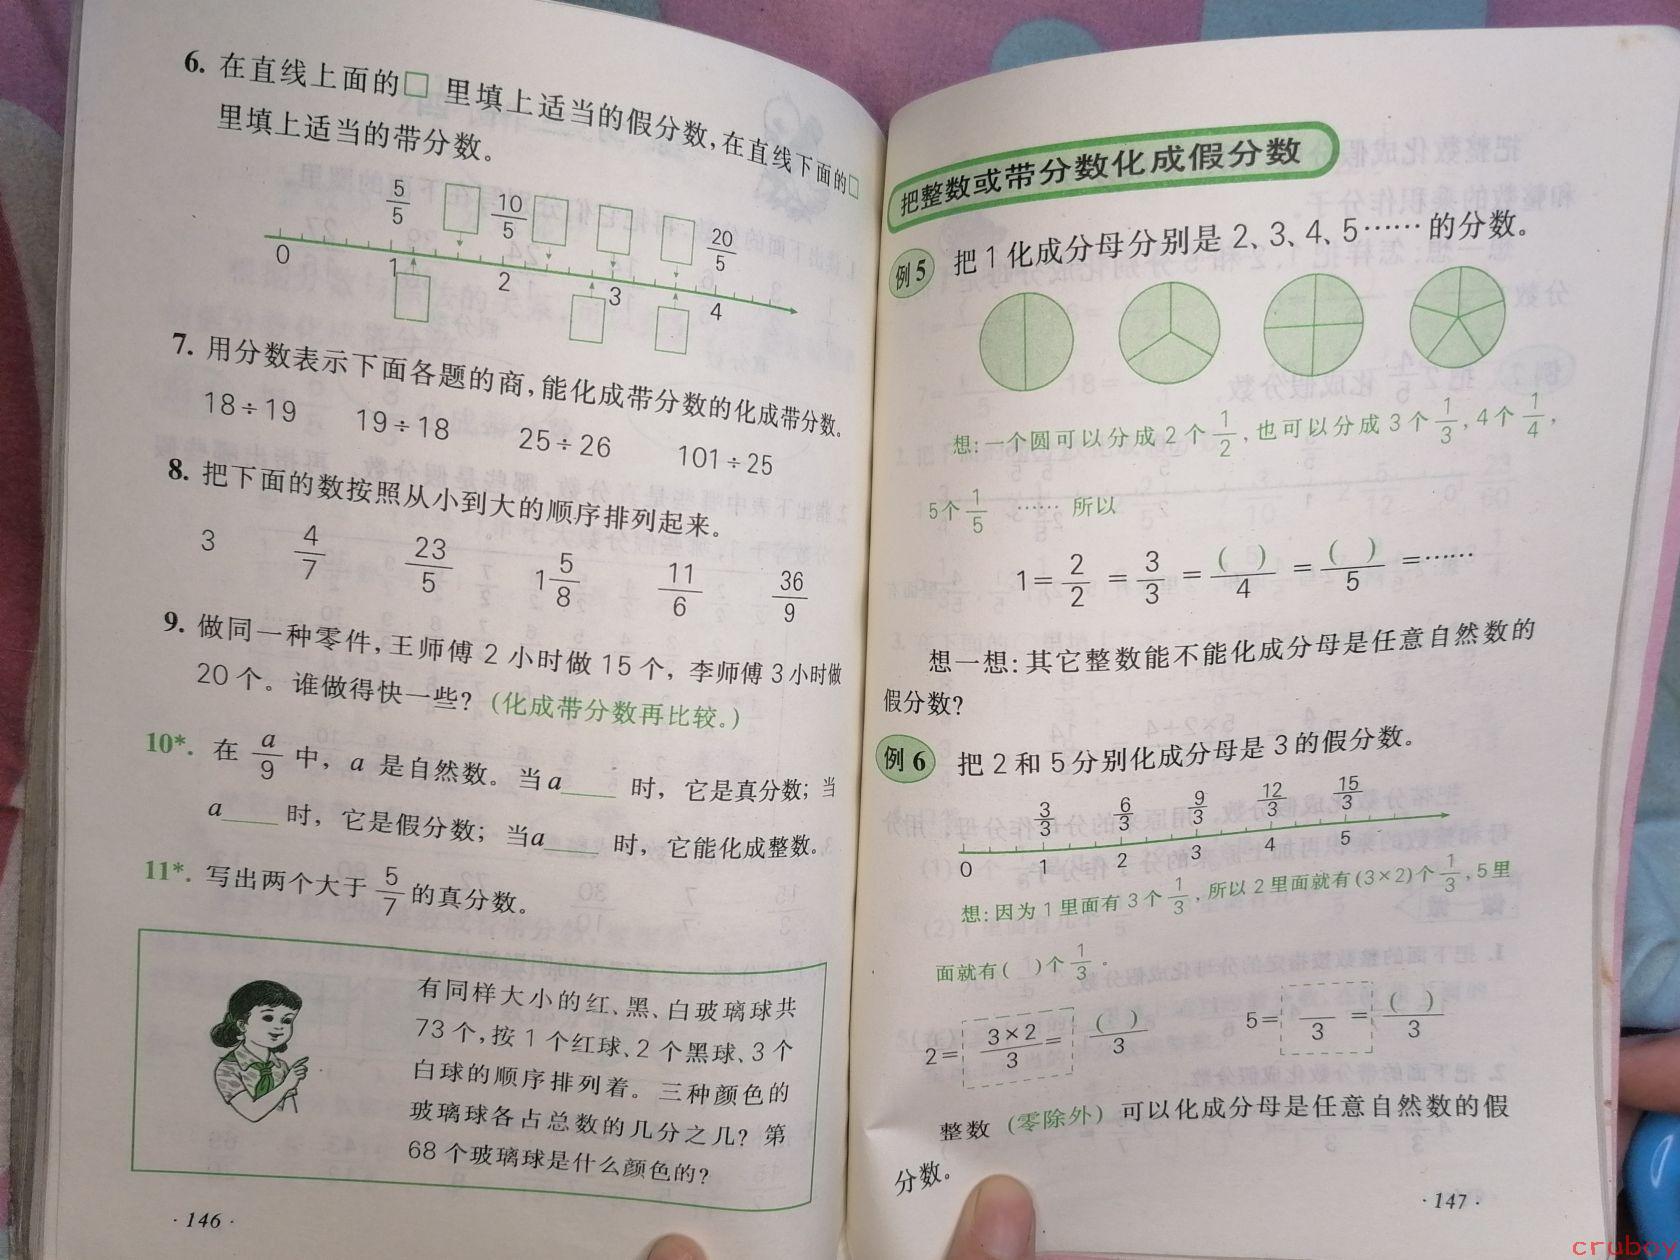 6. 在直线上面的□ 里填上适当的假分数,在直线下面的□
里填上适当的带分数。
5/5 10/5 20/5
0 1 2 3 4
7. 用分数表示下面各题的商,能化成带分数的化成带分数。
18÷19 19÷18 25÷26 101÷25
8. 把下面的数按照从小到大的顺序排列起来。
3 4/7 23/5 1 5/8 11/6 36/9
9. 做同一种零件,王师傅 2 小时做 15 个, 李师傅 3 小时做
20 个。谁做得快一些? (化成带分数再比较。)
10*. 在 a/9 中, a 是自然数。当a____ 时, 它是真分数; 当
a____ 时, 它是假分数; 当a____ 时, 它能化成整数。
11*. 写出两个大于 5/7 的真分数。
有同样大小的红、黑、白玻璃球共
73 个,按 1 个红球、2 个黑球、3 个
白球的顺序排列着。三种颜色的
玻璃球各占总数的几分之几? 第
68 个玻璃球是什么颜色的?
·146·
把整数或带分数化成假分数
例5 把 1 化成分母分别是 2、3、4、5……的分数。
想:一个圆可以分成 2 个 1/2,也可以分成 3 个 1/3,4个 1/4,
5个 1/5 …… 所以
1= 2/2 = 3/3 = ( )/4 = ( )/5 =……
想一想:其它整数能不能化成分母是任意自然数的
假分数?
例6 把 2 和 5 分别化成分母是 3 的假分数。
3/3 6/3 9/3 12/3 15/3
0 1 2 3 4 5
想:因为 1 里面有 3 个 1/3,所以 2 里面就有(3×2)个 1/3,5 里
面就有( )个 1/3。
2= 3×2/3 = ( )/3 5= /3 = ( )/3
整数 (零除外) 可以化成分母是任意自然数的假
分数。
·147·
cruboy